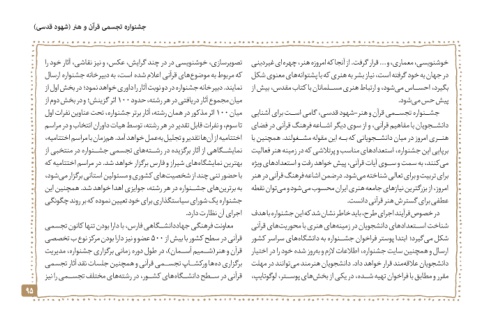 جشنواره تجسمی قرآن و هنر (شهود قدسی)
خوشنویسی، معماری، و... قرار گرفت. از آنجا که امروزه هنر، چهره‌ای غیردینی
در جهان به خود گرفته است، نیاز بشر به هنری که با پشتوانه‌های معنوی شکل
بگیرد، احساس می‌شود، و ارتباط هنری مسلمانان با کتاب مقدس، بیش از
پیش حس می‌شود.
جشنواره تجسمی قرآن و هنر-شهود قدسی، گامی است برای آشنایی
دانشجویان با مفاهیم قرآنی، و از سوی دیگر اشاعه فرهنگ قرآنی در فضای
هنری امروز در میان دانشجویانی که به این مقوله مشغولند. همچنین با
برپایی این جشنواره، استعدادهای مناسب و پرتلاشی که در زمینه هنر فعالیت
می‌کنند، به سمت و سوی آیات قرآنی، پیش خواهد رفت و استعدادهای ویژه
برای تربیت و برای تعالی شناخته می‌شود. در ضمن اشاعه فرهنگ قرآنی در هنر
امروز، از بزرگترین نیازهای جامعه هنری ایران محسوب می‌شود و می‌توان نقطه
عطفی برای گسترش هنر قرآنی دانست.
در خصوص فرآیند اجرای طرح، باید خاطر نشان شد که این جشنواره با هدف
شناخت استعدادهای دانشجویان در زمینه‌های هنری با محوریت‌های قرآنی
شکل می‌گیرد؛ ابتدا پوستر فراخوان جشنواره به دانشگاه‌های سراسر کشور
ارسال و همچنین سایت جشنواره، اطلاعات لازم و به‌روز شده خود را در اختیار
دانشجویان علاقه‌مند قرار خواهد داد. دانشجویان هنرمند می‌توانند در مهلت
مقرر و مطابق با فراخوان تهیه شده، در یکی از بخش‌های پوستر، لوگوتایپ،
تصویرسازی، خوشنویسی در در چند گرایش، عکس، و نیز نقاشی، آثار خود را
که مربوط به موضوع‌های قرآنی اعلام شده است، به دبیرخانه جشنواره ارسال
نمایند. دبیرخانه جشنواره در دو نوبت آثار را داوری خواهد نمود؛ در بخش اول از
میان مجموع آثار دریافتی در هر رشته، حدود ۱۰۰ اثر گزینش؛ و در بخش دوم از
میان ۱۰۰ اثر مذکور در همان رشته، آثار برتر جشنواره، تحت عناوین نفرات اول
تا سوم، و نفرات قابل تقدیر در هر رشته، توسط هیات داوران انتخاب و در مراسم
اختتامیه از آن‌ها تقدیر و تجلیل به عمل خواهد آمد. همزمان با مراسم اختتامیه،
نمایشگاهی از آثار برگزیده در رشته‌های تجسمی جشنواره در منتخبی از
بهترین نمایشگاه‌های شیراز و فارس برگزار خواهد شد. در مراسم اختتامیه که
با حضور تنی چند از شخصیت‌های کشوری و مسئولین استانی برگزار می‌شود،
به برترین‌های جشنواره در هر رشته، جوایزی اهدا خواهد شد. همچنین این
جشنواره یک شورای سیاستگذاری برای خود تعیین نموده که بر روند چگونگی
اجرای آن نظارت دارد.
معاونت فرهنگی جهاددانشگاهی فارس، با دارا بودن تنها کانون تجسمی
قرآنی در سطح کشور با بیش از ۵۰۰ عضو و نیز دارا بودن مرکز نوع ب تخصصی
قرآن و هنر (شمیم آسمان)، در طول دوره زمانی برگزاری جشنواره، مدیریت
برگزاری ده‌ها ورکشاپ تجسمی قرآنی و همچنین جلسات نقد آثار تجسمی
قرآنی در سطح دانشگاه‌های کشور، در رشته‌های مختلف تجسمی را نیز
۹۵